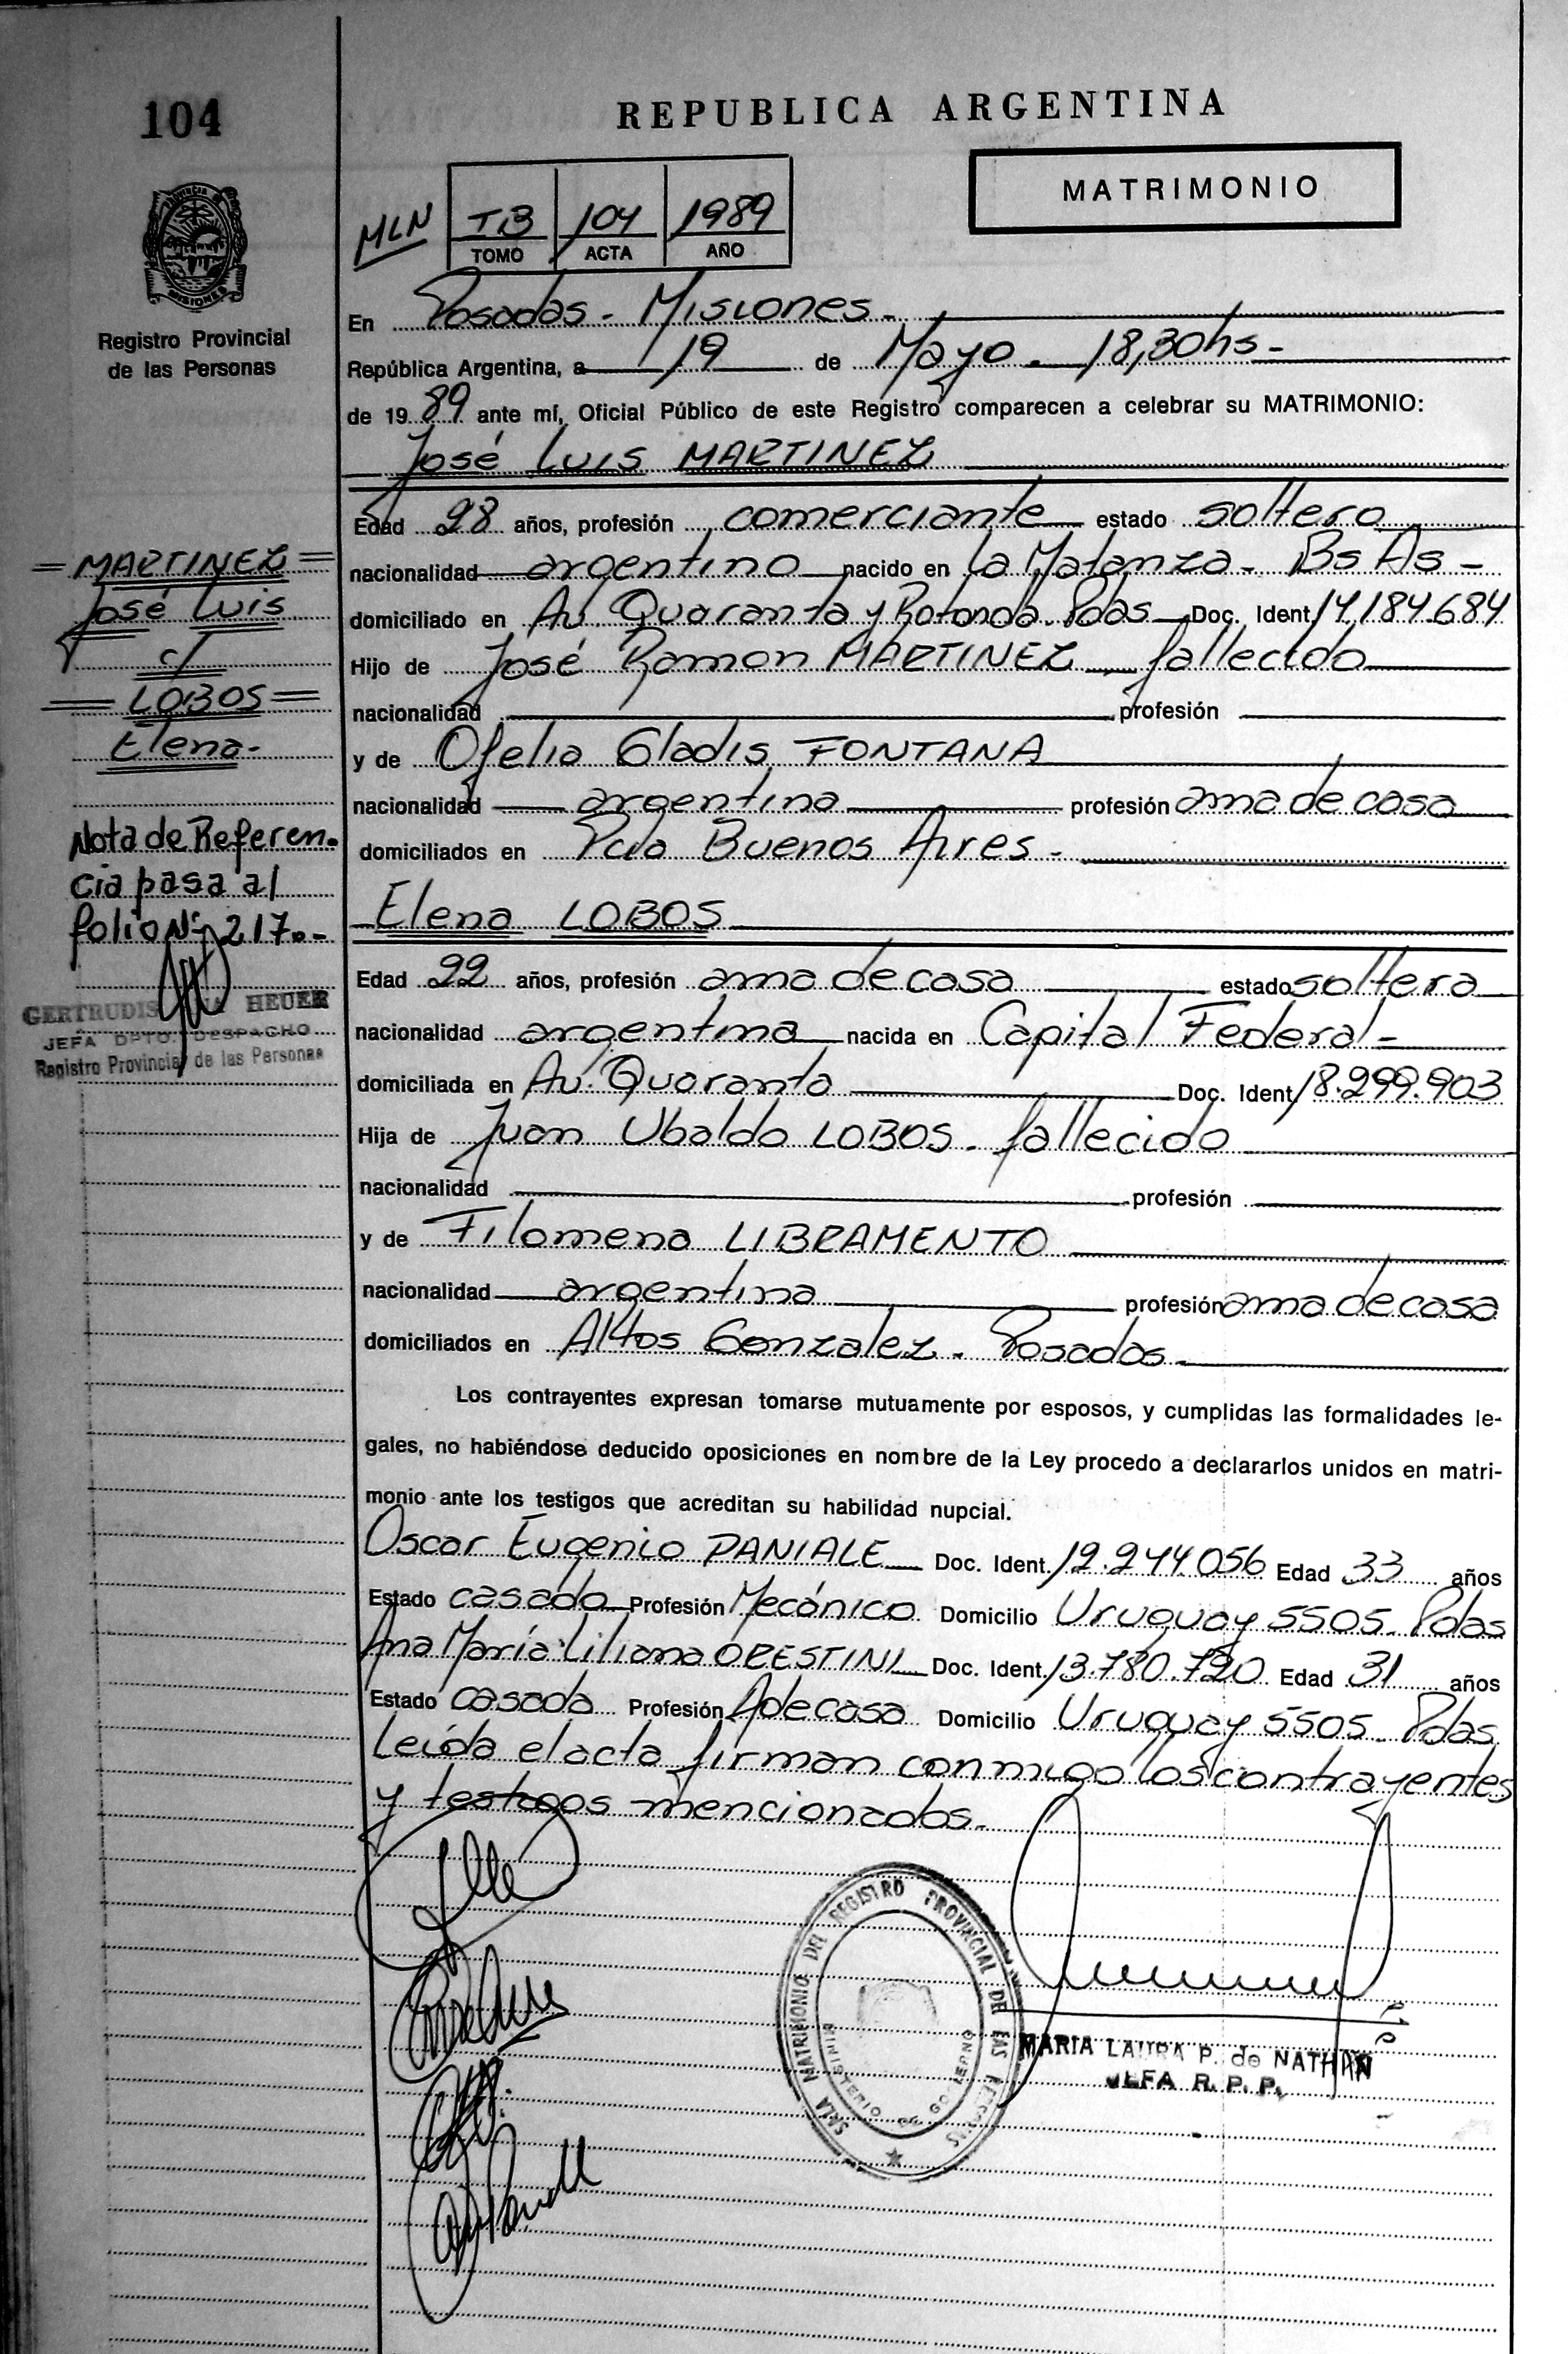 104
REPUBLICA ARGENTINA
MATRIMONIO
MLN
T.3 104 1989
TOMO ACTA AÑO
PROVINCIA DE
MISIONES
Registro Provincial
de las Personas
En Posadas - Misiones -
República Argentina, a 19 de Mayo - 18,30hs -
de 19 89 ante mí, Oficial Público de este Registro comparecen a celebrar su MATRIMONIO:
José Luis MARTINEZ
Edad 28 años, profesión comerciante estado soltero
nacionalidad argentino nacido en La Matanza - Bs As -
domiciliado en Av. Quaranta y Rotonda. Pdas Doc. Ident 14.184.684
Hijo de José Ramon MARTINEZ fallecido
nacionalidad profesión
y de Ofelia Gladis FONTANA
nacionalidad argentina profesión ama de casa
domiciliados en Pcia Buenos Aires -
Elena LOBOS
Edad 22 años, profesión ama de casa estado soltera
nacionalidad argentina nacida en Capital Federal -
domiciliada en Av. Quaranta Doc. Ident 18.299.903
Hija de Juan Ubaldo LOBOS - fallecido
nacionalidad profesión
y de Filomena LIBRAMENTO
nacionalidad argentina profesión ama de casa
domiciliados en Altos Gonzalez - Posadas -
Los contrayentes expresan tomarse mutuamente por esposos, y cumplidas las formalidades le-
gales, no habiéndose deducido oposiciones en nombre de la Ley procedo a declararlos unidos en matri-
monio ante los testigos que acreditan su habilidad nupcial.
Oscar Eugenio PANIALE Doc. Ident. 12.244.056 Edad 33 años
Estado casado Profesión Mecánico Domicilio Uruguay 5505. Pdas
Ana María Liliana ORESTINI Doc. Ident. 13.780.720 Edad 31 años
Estado casada Profesión A de casa Domicilio Uruguay 5505. Pdas
Leída el acta firman conmigo los contrayentes
y testigos mencionados -
= MARTINEZ =
José Luis
c/
= LOBOS =
Elena -
Nota de Referen-
cia pasa al
folio Nº 217.-
GERTRUDIS HEUER
JEFA DPTO. DESPACHO
Registro Provincial de las Personas
SALA MATRIMONIO DEL REGISTRO PROVINCIAL DE LAS PERSONAS
MINISTERIO DE GOBIERNO
MARIA LAURA P. de NATHAN
JEFA R. P. P.